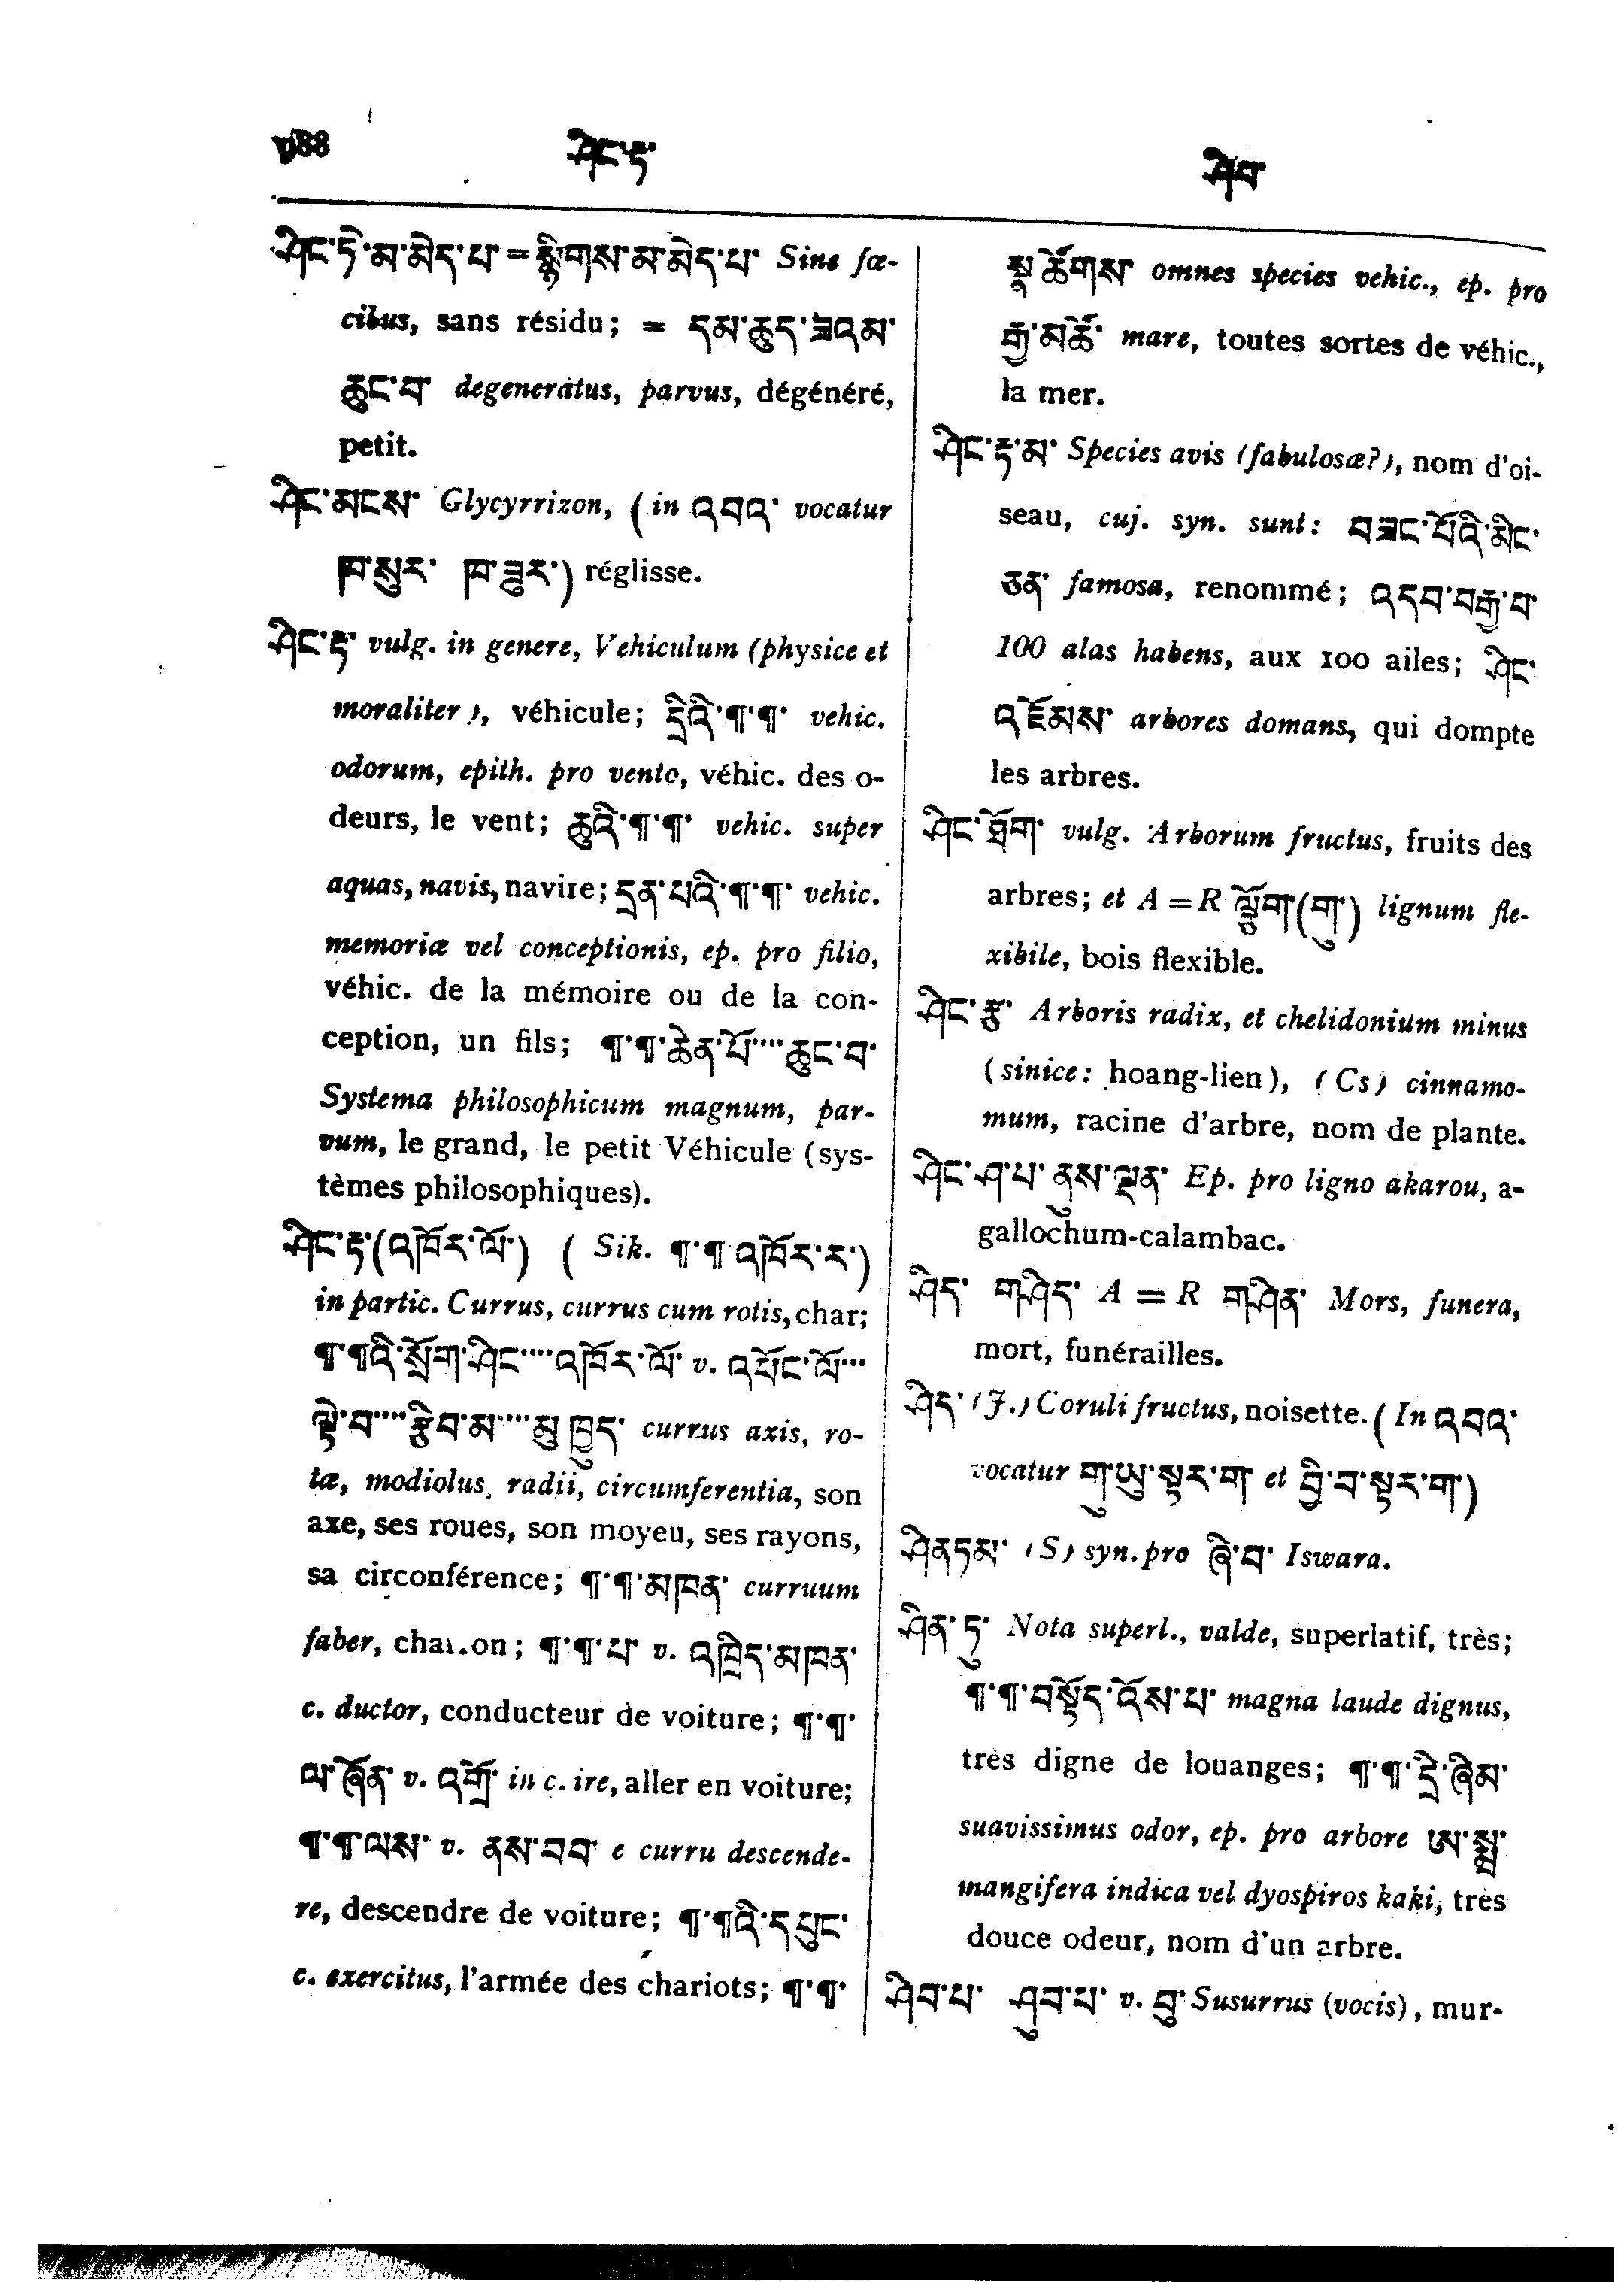 ཤིང་ཏ་
ཤིབ་
ཤིང་ཏེ་མ་མེད་པ་ = སྙིགས་མ་མེད་པ་ Sine fæ-
cibus, sans résidu; = དམ་ཆུད་ཟའམ་
ཆུང་བ་ degeneratus, parvus, dégénéré,
petit.
ཤིང་མངས་ Glycyrrizon, (in འབའ་ vocatur
ཁ་སུར་ ཁ་ཟུར་) réglisse.
ཤིང་ཏ་ vulg. in genere, Vehiculum (physice et
moraliter), véhicule; དྲིའི་¶་¶་ vehic.
odorum, epith. pro vento, véhic. des o-
deurs, le vent; ཆུའི་¶་¶་ vehic. super
aquas, navis, navire; དྲན་པའི་¶་¶་ vehic.
memoriæ vel conceptionis, ep. pro filio,
véhic. de la mémoire ou de la con-
ception, un fils; ¶་¶་ཆེན་པོ་····ཆུང་བ་
Systema philosophicum magnum, par-
vum, le grand, le petit Véhicule (sys-
tèmes philosophiques).
ཤིང་ཏ་(འཁོར་ལོ་) ( Sik. ¶་¶་འཁོར་ར་)
in partic. Currus, currus cum rotis, char;
¶་¶འི་སྲོག་ཤིང་····འཁོར་ལོ་ v. འཕོང་ལོ་···
ལྟེ་བ་····རྩིབ་མ་····མུ་ཁྱུད་ currus axis, ro-
tæ, modiolus, radii, circumferentia, son
axe, ses roues, son moyeu, ses rayons,
sa circonférence; ¶་¶་མཁན་ curruum
faber, charron; ¶་¶་པ་ v. འཁྲིད་མཁན་
c. ductor, conducteur de voiture; ¶་¶་
ལ་ཞོན་ v. འགྲོ་ in c. ire, aller en voiture;
¶་¶་ལས་ v. ནས་བབ་ e curru descende-
re, descendre de voiture; ¶་¶འི་དཔུང་
c. exercitus, l'armée des chariots; ¶་¶་
སྣ་ཚོགས་ omnes species vehic., ep. pro
རྒྱ་མཚོ་ mare, toutes sortes de véhic.,
la mer.
ཤིང་ཏ་མ་ Species avis (fabulosæ?), nom d'oi-
seau, cuj. syn. sunt: བཟང་པོའི་མིང་
ཅན་ famosa, renommé; འདབ་བརྒྱ་པ་
100 alas habens, aux 100 ailes; ཤིང་
འཇོམས་ arbores domans, qui dompte
les arbres.
ཤིང་ཐོག་ vulg. Arborum fructus, fruits des
arbres; et A = R ལྕོག་(གུ་) lignum fle-
xibile, bois flexible.
ཤིང་རྩ་ Arboris radix, et chelidonium minus
(sinice: hoang-lien), (Cs) cinnamo-
mum, racine d'arbre, nom de plante.
ཤིང་ཤ་པ་ ནུས་ལྡན་ Ep. pro ligno akarou, a-
gallochum-calambac.
ཤིད་ གཤིད་ A = R གཤིན་ Mors, funera,
mort, funérailles.
ཤིད་ (J.) Coruli fructus, noisette. (In འབའ་
vocatur གུ་ཡུ་སྟར་ག་ et བྱི་བ་སྟར་ག་)
ཤིནཏམ་ (S) syn. pro ཞི་བ་ Iswara.
ཤིན་ཏུ་ Nota superl., valde, superlatif, très;
¶་¶་བསྟོད་འོས་པ་ magna laude dignus,
très digne de louanges; ¶་¶་དྲི་ཞིམ་
suavissimus odor, ep. pro arbore ཨ་སྨྲ་
mangifera indica vel dyospiros kaki, très
douce odeur, nom d'un arbre.
ཤིབ་པ་ ཤུབ་པ་ v. བྲུ་ Susurrus (vocis), mur-